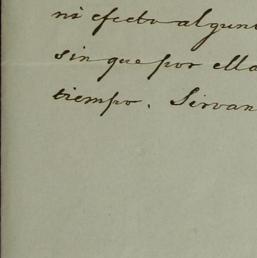 ni efecto alguno
sin que por ella
tiempo. Sirvan